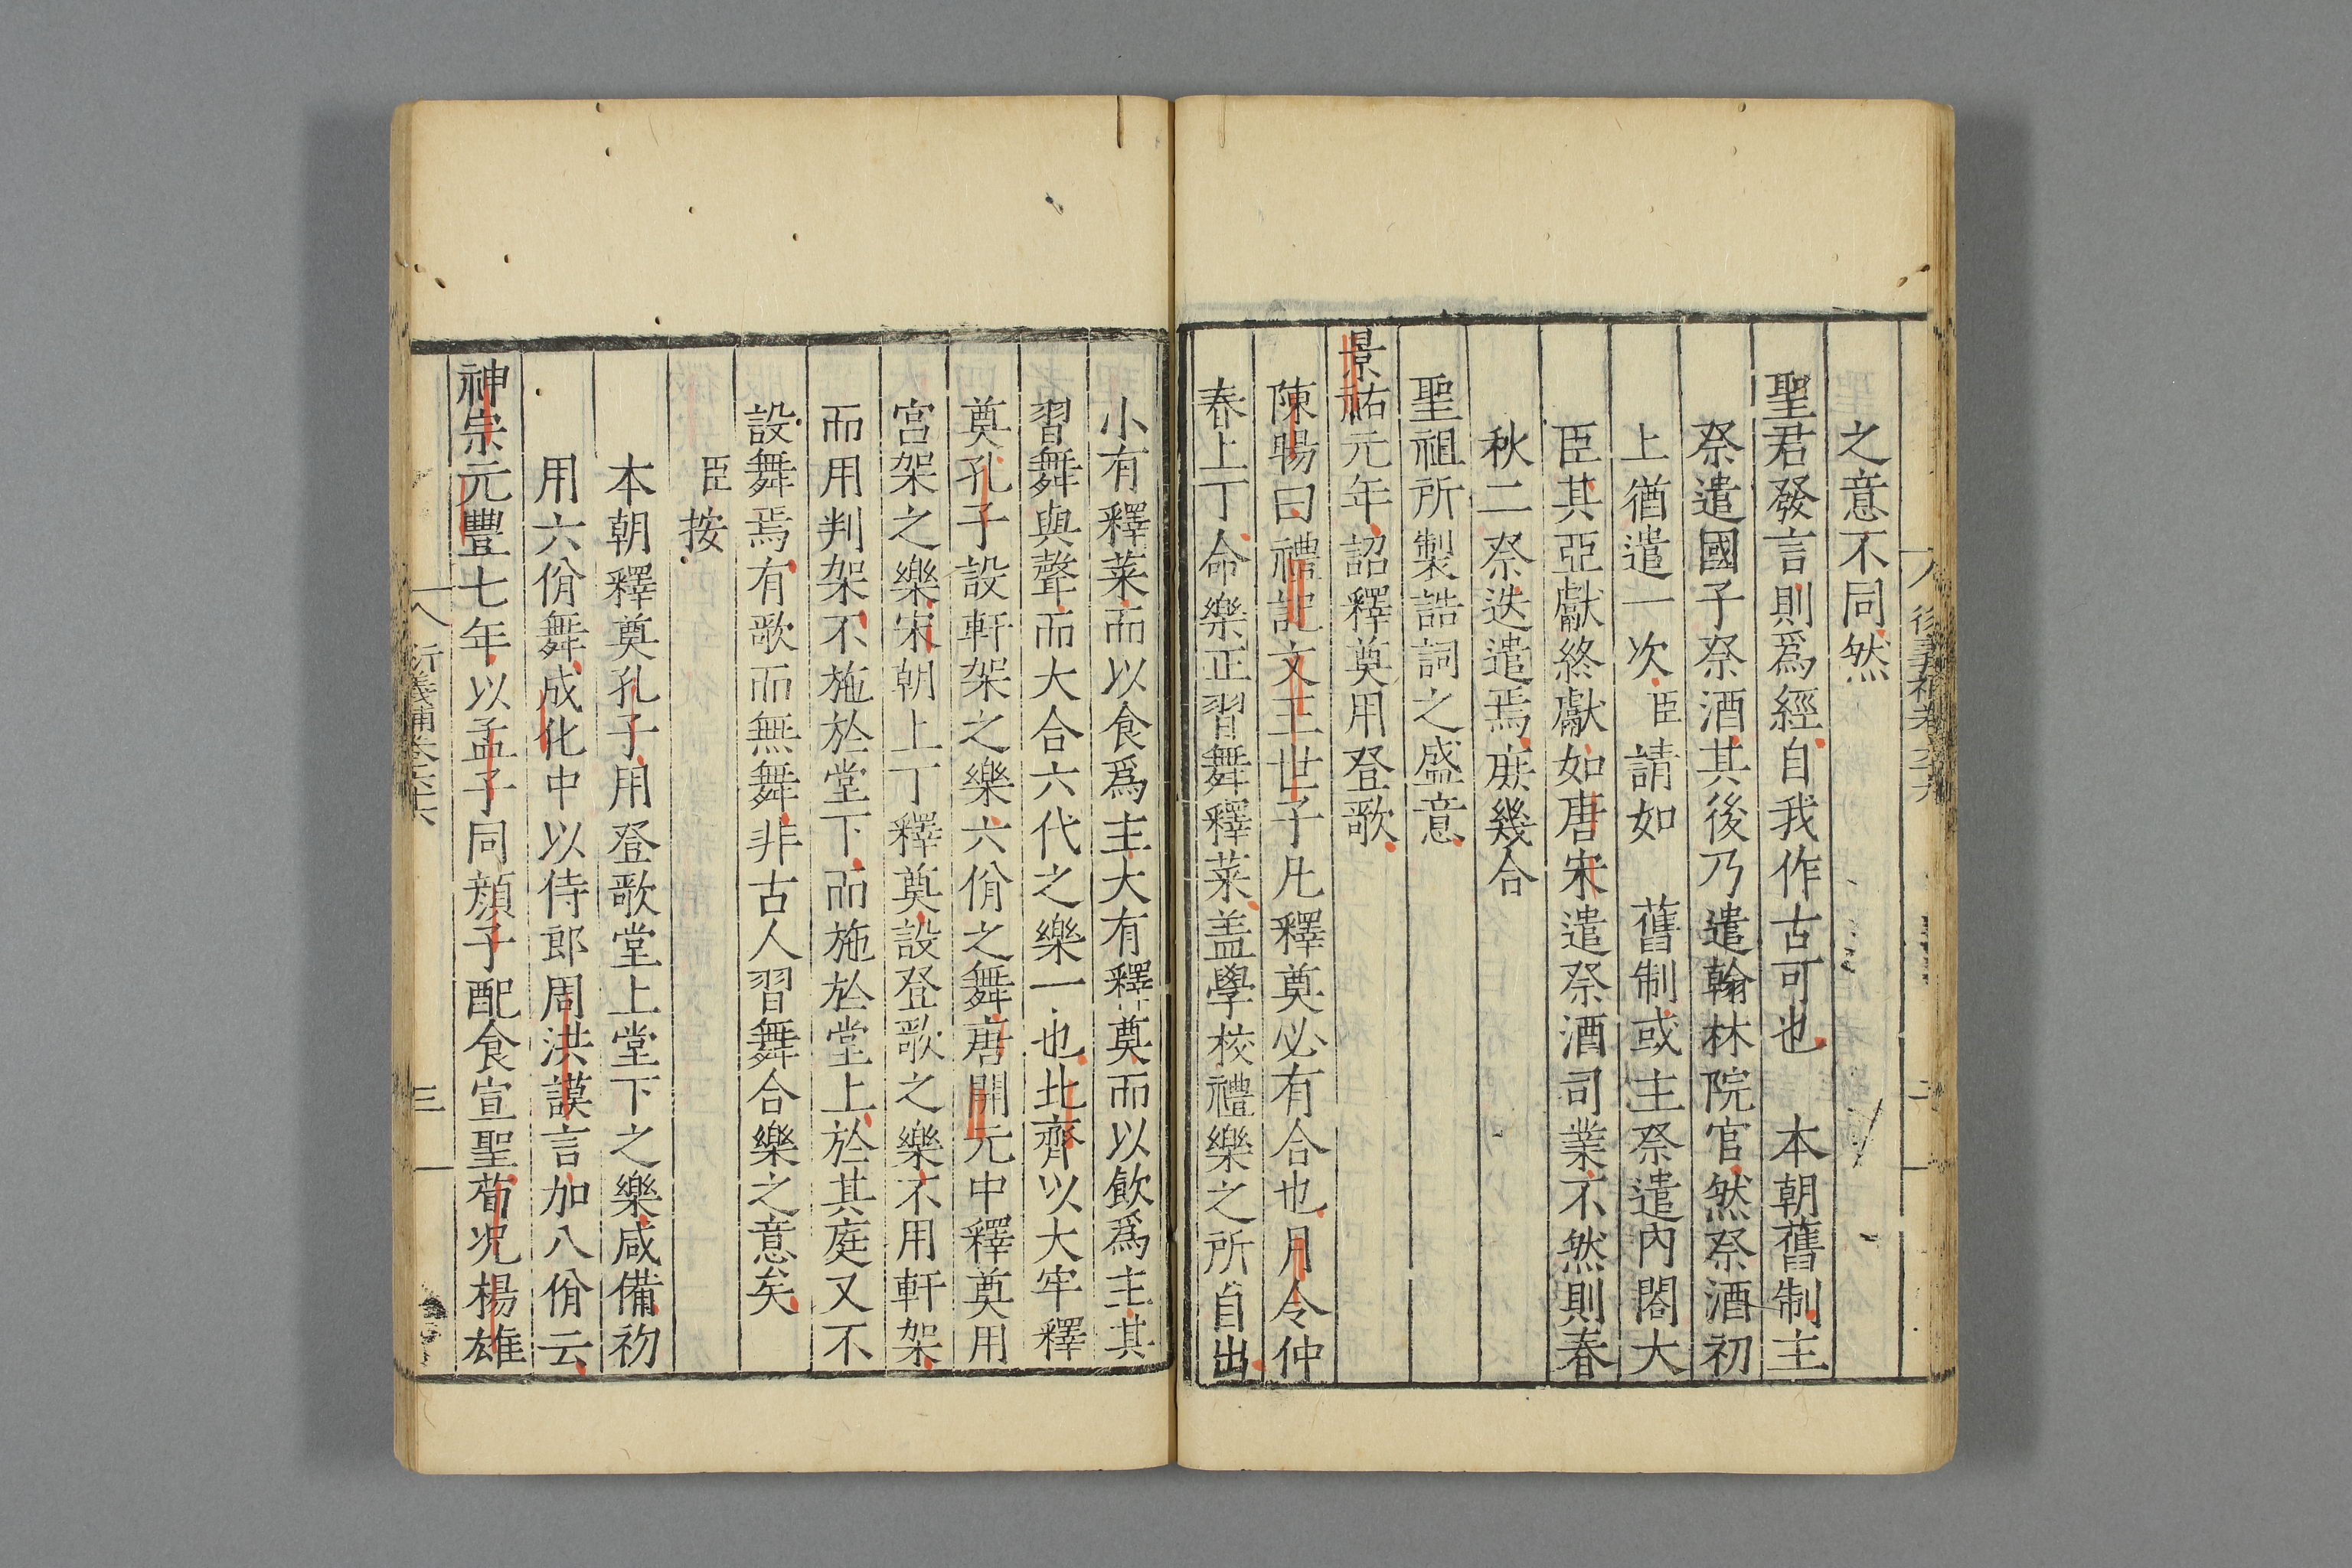 之意不同然
聖君發言則爲經自我作古可也　本朝舊制主
祭遣國子祭酒其後乃遣翰林院官然祭酒初
上猶遣一次臣請如　舊制或主祭遣內閣大
臣其亞獻終獻如唐宋遣祭酒司業不然則春
秋二祭迭遣焉庶幾合
聖祖所製誥詞之盛意
景祐元年詔釋奠用登歌
陳暘曰禮記文王世子凡釋奠必有合也月令仲
春上丁命樂正習舞釋菜盖學校禮樂之所自出
小有釋菜而以食爲主大有釋奠而以飲爲主其
習舞與聲而大合六代之樂一也北齊以大牢釋
奠孔子設軒架之樂六佾之舞唐開元中釋奠用
宮架之樂宋朝上丁釋奠設登歌之樂不用軒架
而用判架不施於堂下而施於堂上於其庭又不
設舞焉有歌而無舞非古人習舞合樂之意矣
臣按
本朝釋奠孔子用登歌堂上堂下之樂咸備初
用六佾舞成化中以侍郎周洪謨言加八佾云
神宗元豐七年以孟子同顏子配食宣聖荀况楊雄
衍義補卷六十六
三